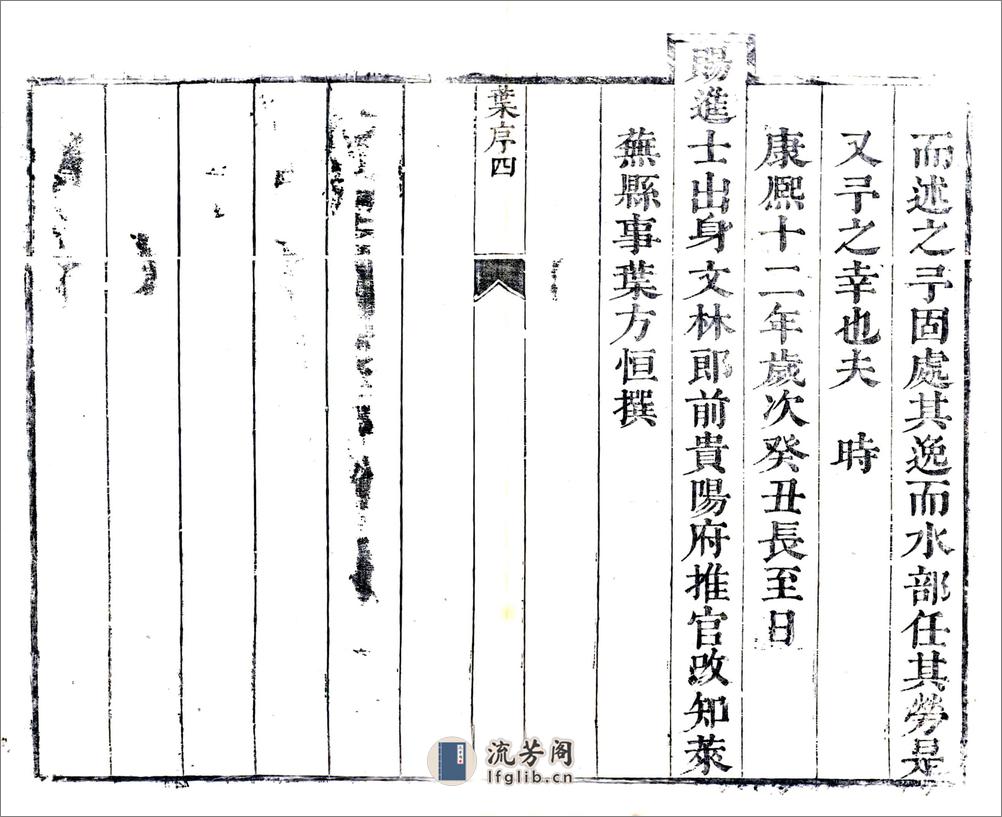 而述之予固處其逸而水部任其勞是
又予之幸也夫　時
康熙十二年歲次癸丑長至日
賜進士出身文林郎前貴陽府推官改知萊
蕪縣事葉方恒撰
葉序四
流芳阁
lfglib.cn